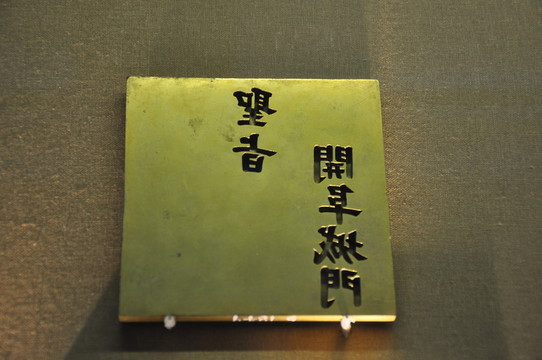 聖旨
開阜城門